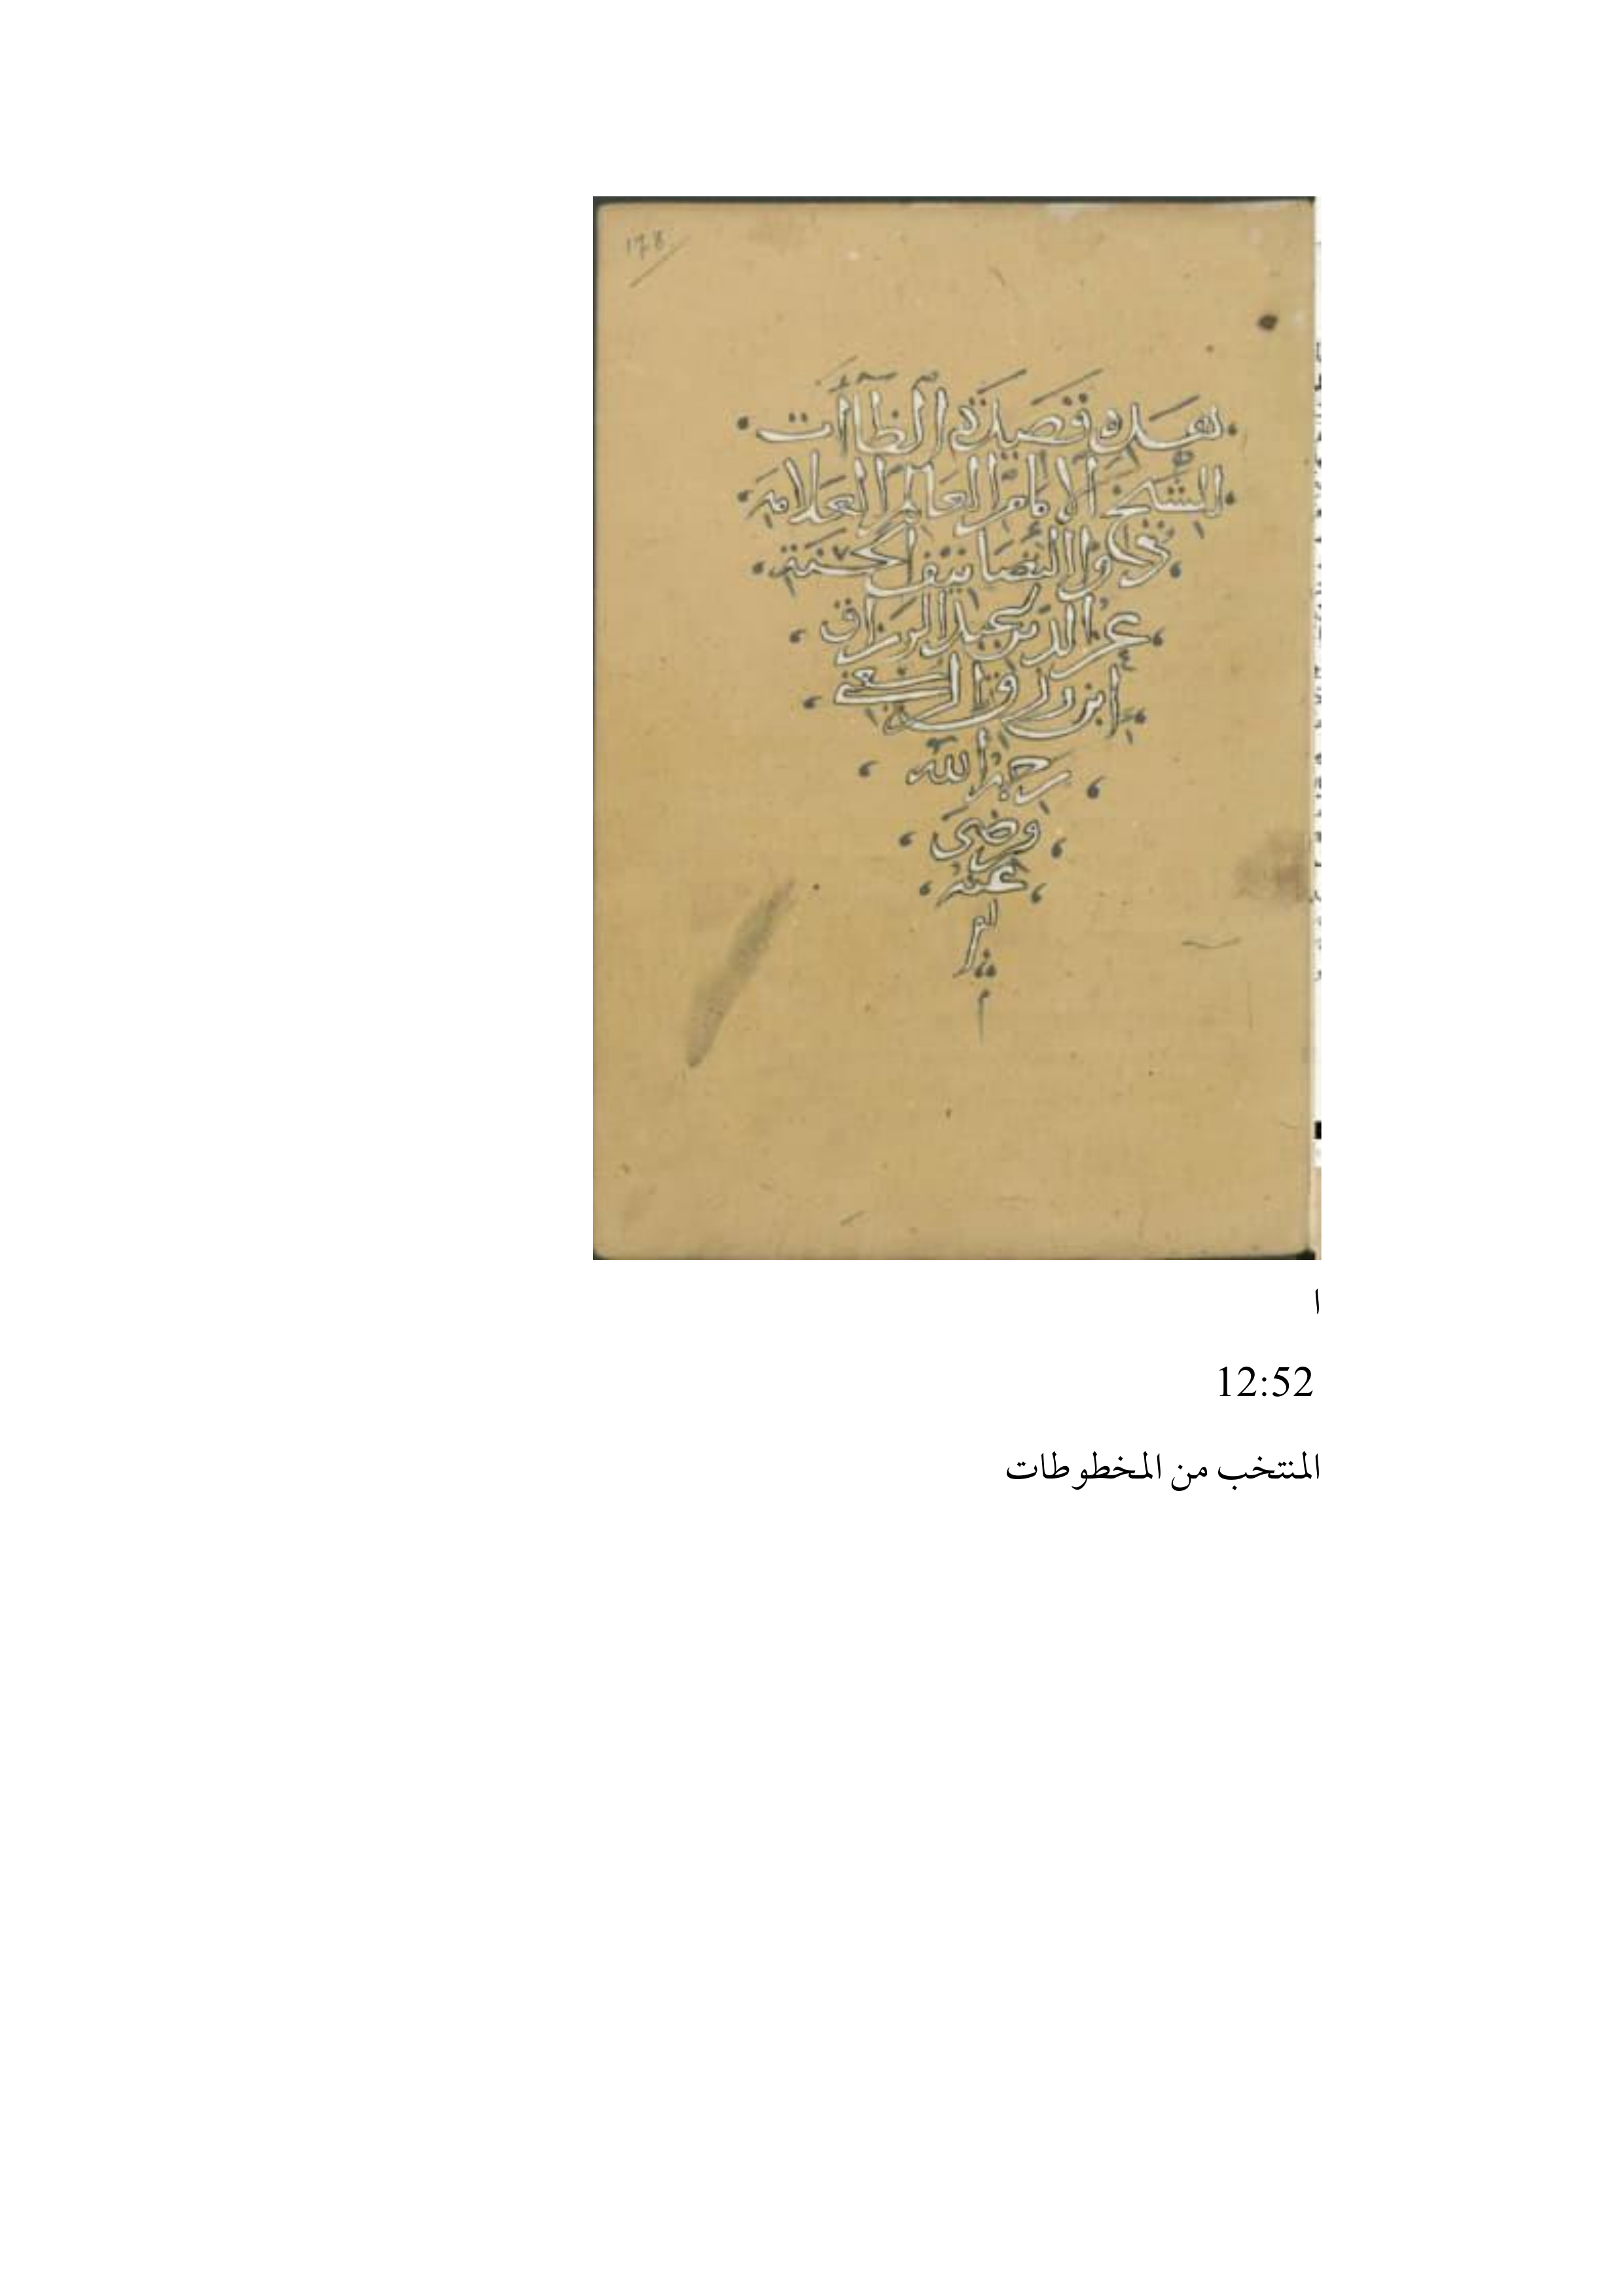 178
هذه قصيدة الظاآت
للشيخ الامام العالم العلامة
ذو التصانيف الحسنة
عز الدين عبد الرزاق
ابن رزق الله الرسعني
رحمه الله
ورضى
عنه
ا
12:52
المنتخب من المخطوطات